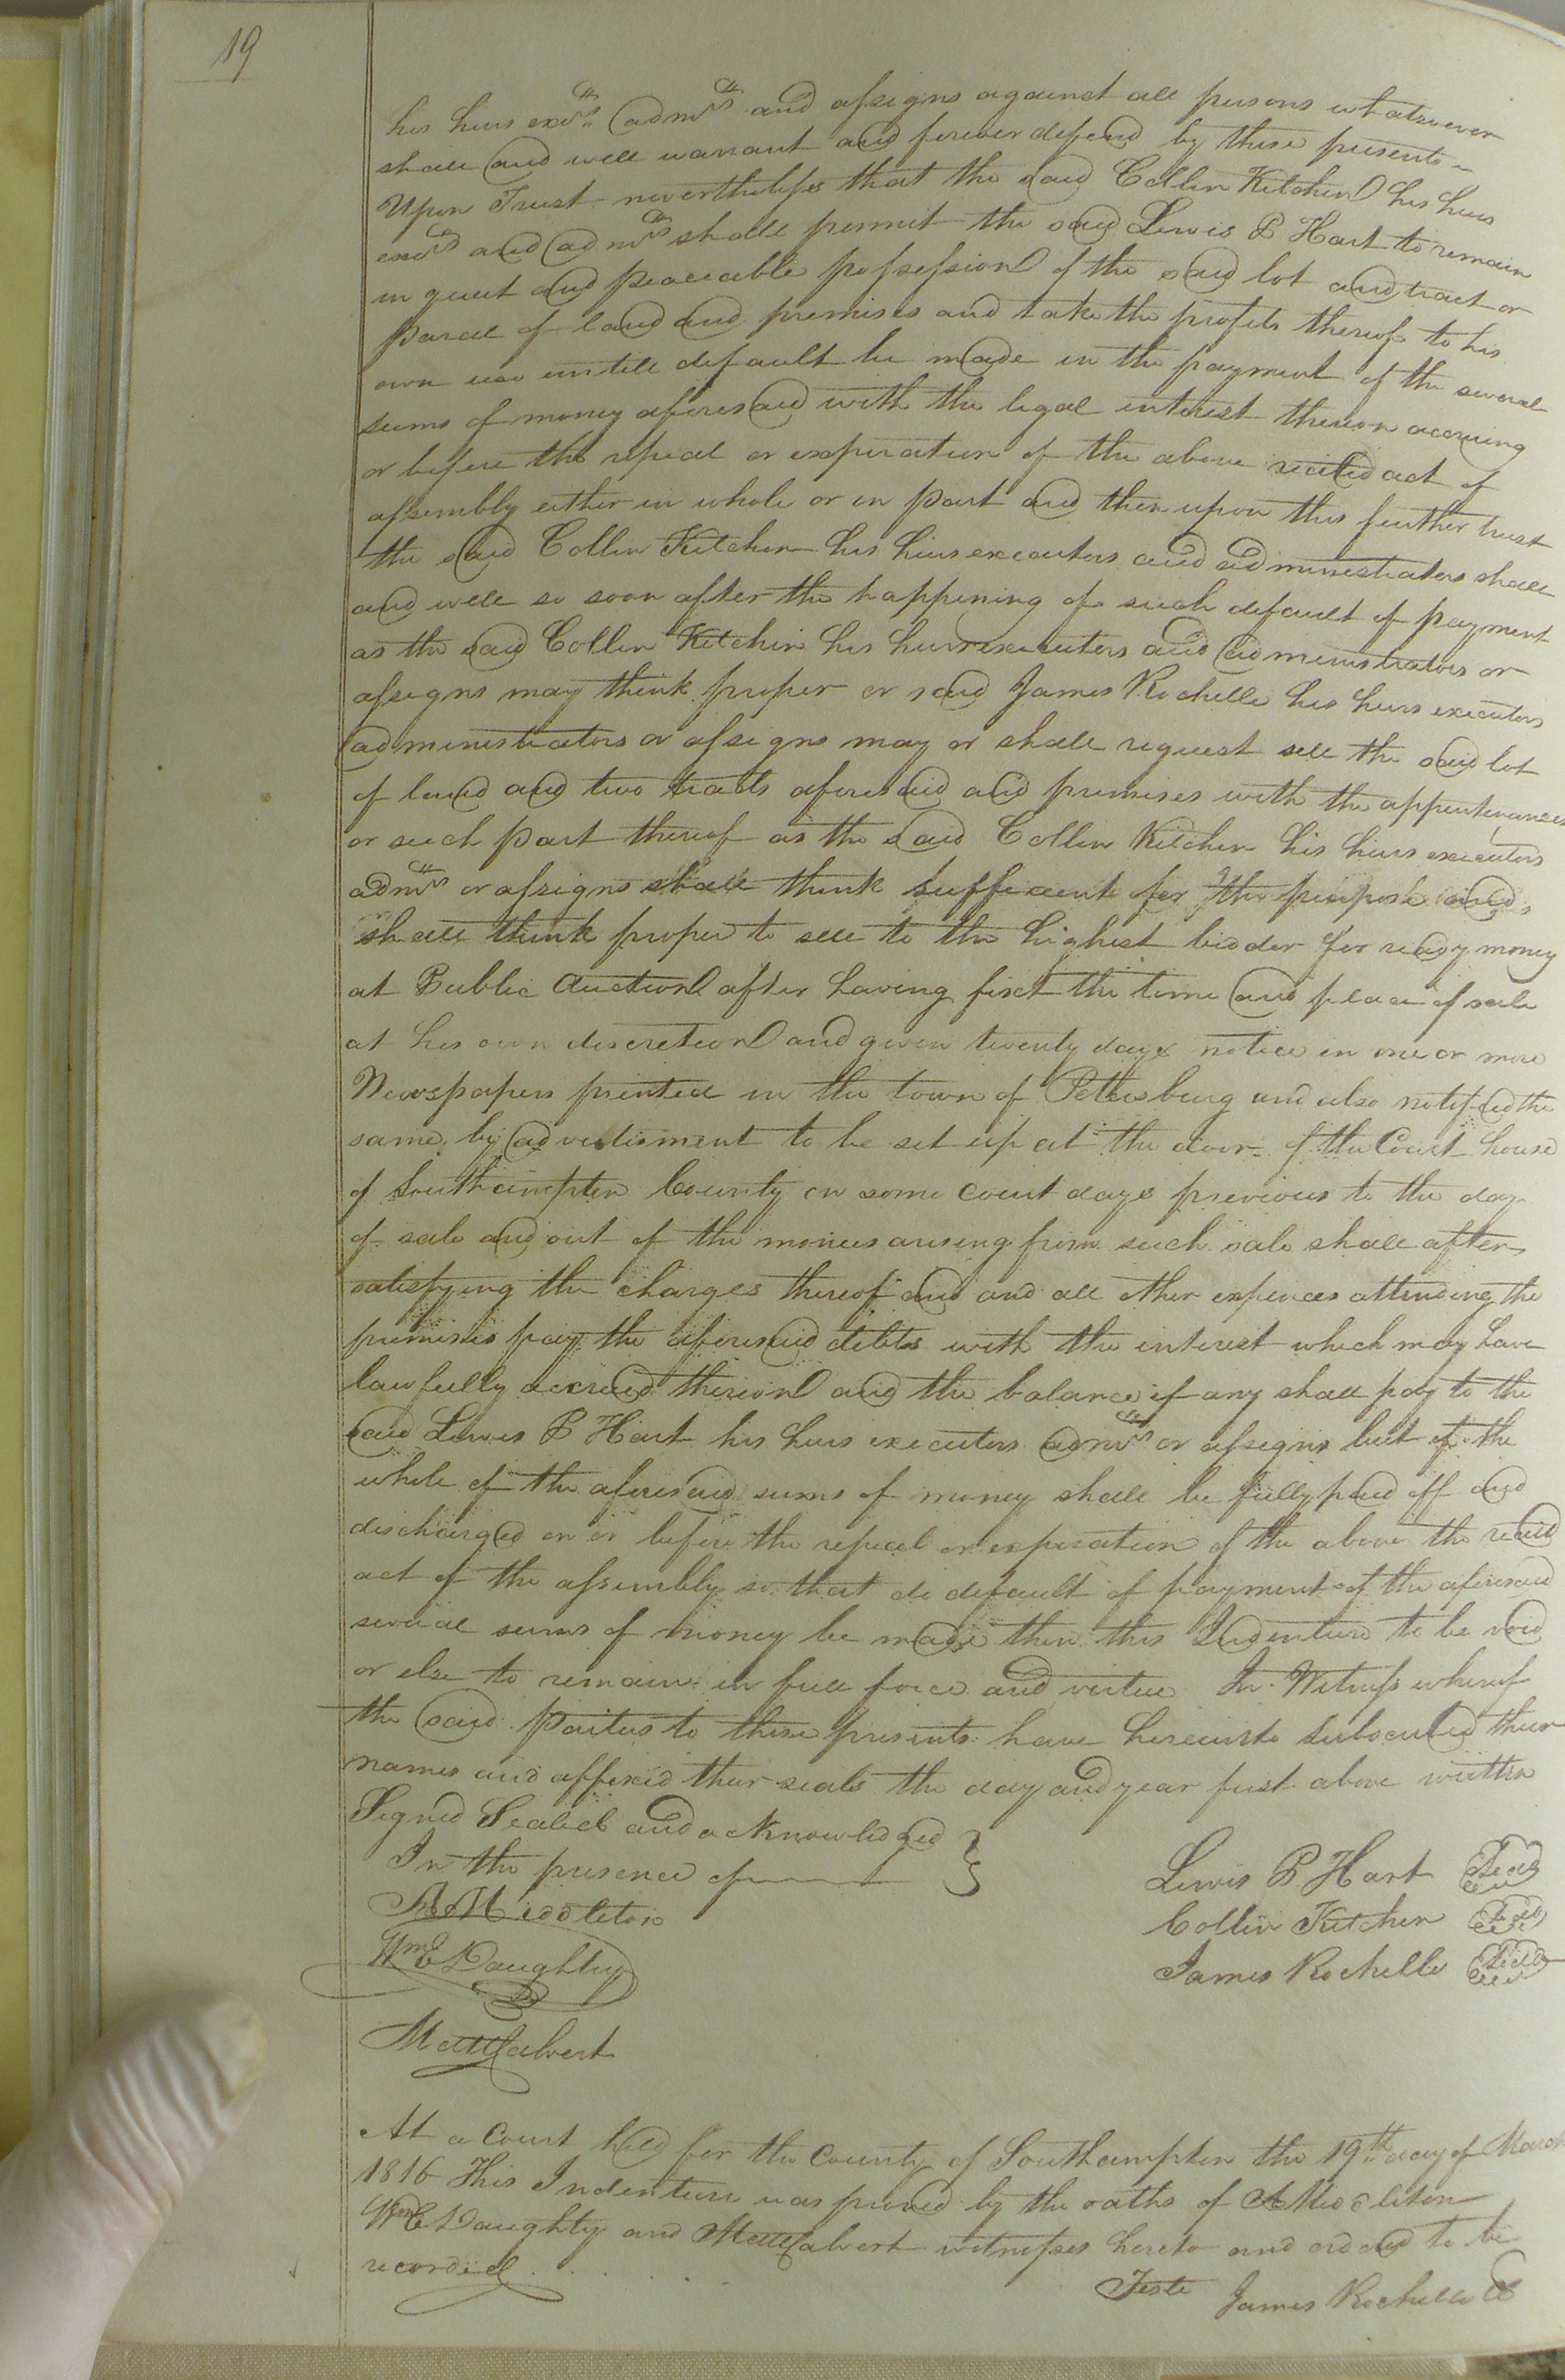 19
his heirs exo.rs adm.rs and assigns against all persons whatsoever
shall and will warrant and forever defend by these presents
Upon Trust nevertheless that the said Collin Kitchen his heirs
exo.rs and adm.rs shall permit the said Lewis B Hart to remain
in quiet and peaceable possession of the said lot and tract or
parcel of land and premises and take the profits thereof to his
own use untill default be made in the payment of the several
sums of money aforesaid with the legal interest thereon accruing
or before the repeal or expiration of the above recited act of
assembly either in whole or in part and then upon this further trust
the said Collin Kitchen his heirs executors and administrators shall
and will so soon after the happening of such default of payment
as the said Collin Kitchin his heirs executors and administrators or
assigns may think proper or said James Rochelle his heirs executors
administrators or assigns may or shall request sell the said lot
of land and two tracts aforesaid and premises with the appurtenances
or such part thereof as the said Collin Kitchen his heirs executors
adm.rs or assigns shall think sufficient for the purpose and
shall think proper to sell to the highest bidder for ready money
at Public Auction after having fixt the time and place of sale
at his own discretion and given twenty days notice in one or more
Newspapers printed in the town of Petersburg and also notified the
same by advertisment to be set up at the door of the Court house
of Southampton County on some court days previous to the day
of sale and out of the monies arising from such sale shall after
satisfying the charges thereof and and all other expences attending the
premises pay the aforesaid debts with the interest which may have
lawfully accrued thereon and the balance if any shall pay to the
said Lewis B Hart his heirs executors adm.rs or assigns but if the
whole of the aforesaid sums of money shall be fully paid off and
discharged on or before the repeal or expiration of the above the recited
act of the assembly so that do default of payment of the aforesaid
several sums of money be made then this Indenture to be void
or else to remain in full force and virtue In Witness whereof
the said parties to these presents have hereunto subscribed their
names and affixed their seals the day and year first above written
Signed Sealed and acknowledged
In the presence of
Lewis B Hart Seal
Middleton
Collin Kitchen Seal
Wm E Daughtry
James Rochelle Seal
Matt Calvert
At a Court held for the County of Southampton the 19th day of March
1816 This Indenture was proved by the oaths of A Middleton
Wm E Daughtry and Matt Calvert witnesses hereto and ordered to be
recorded
Teste James Rochelle C